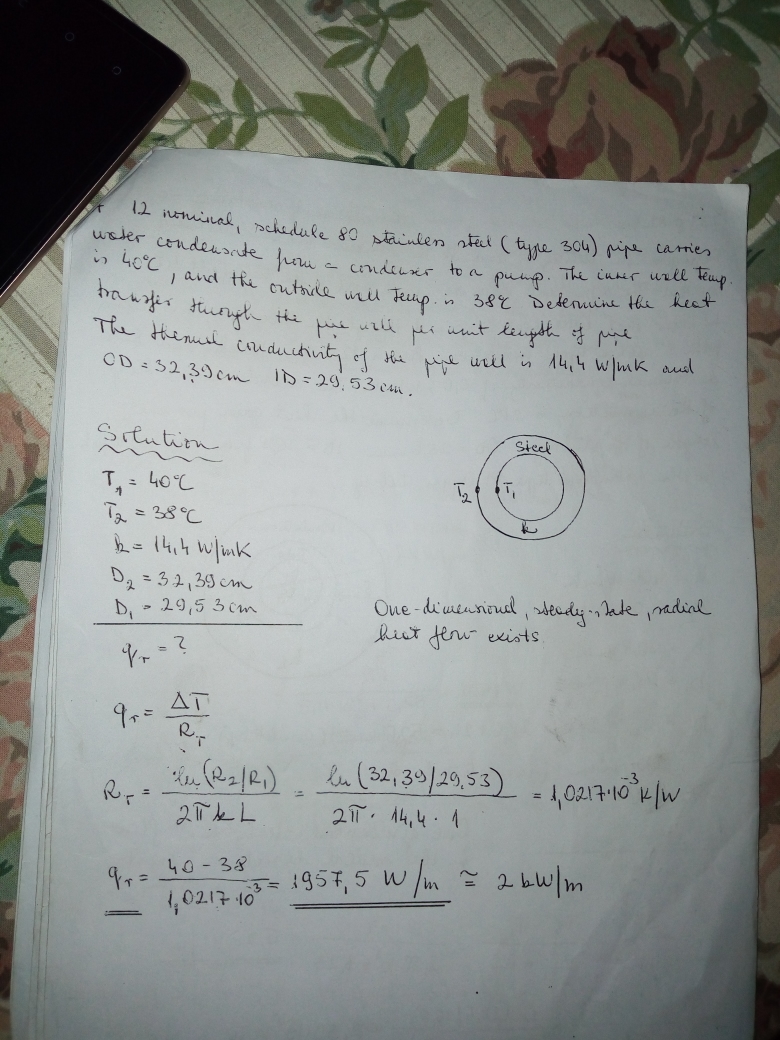 A 12 nominal, schedule 80 stainless steel (type 304) pipe carries
water condensate from a condenser to a pump. The inner wall temp.
is 40°C, and the outside wall temp. is 38°C Determine the heat
transfer through the pipe wall per unit length of pipe
The thermal conductivity of the pipe wall is 14,4 W/mK and
OD = 32,39 cm ID = 29,53 cm.
Solution
T₁ = 40°C
T₂ = 38°C
k = 14,4 W/mK
D₂ = 32,39 cm
D₁ = 29,53 cm
qᵣ = ?
Steel
T₂ T₁
k
One-dimensional, steady-state, radial
heat flow exists.
qᵣ = ΔT / R_T
R_T = ln(R₂/R₁) / 2πkL = ln(32,39/29,53) / 2π · 14,4 · 1 = 1,0217·10⁻³ K/W
qᵣ = 40 - 38 / 1,0217·10⁻³ = 1957,5 W/m ≅ 2 kW/m